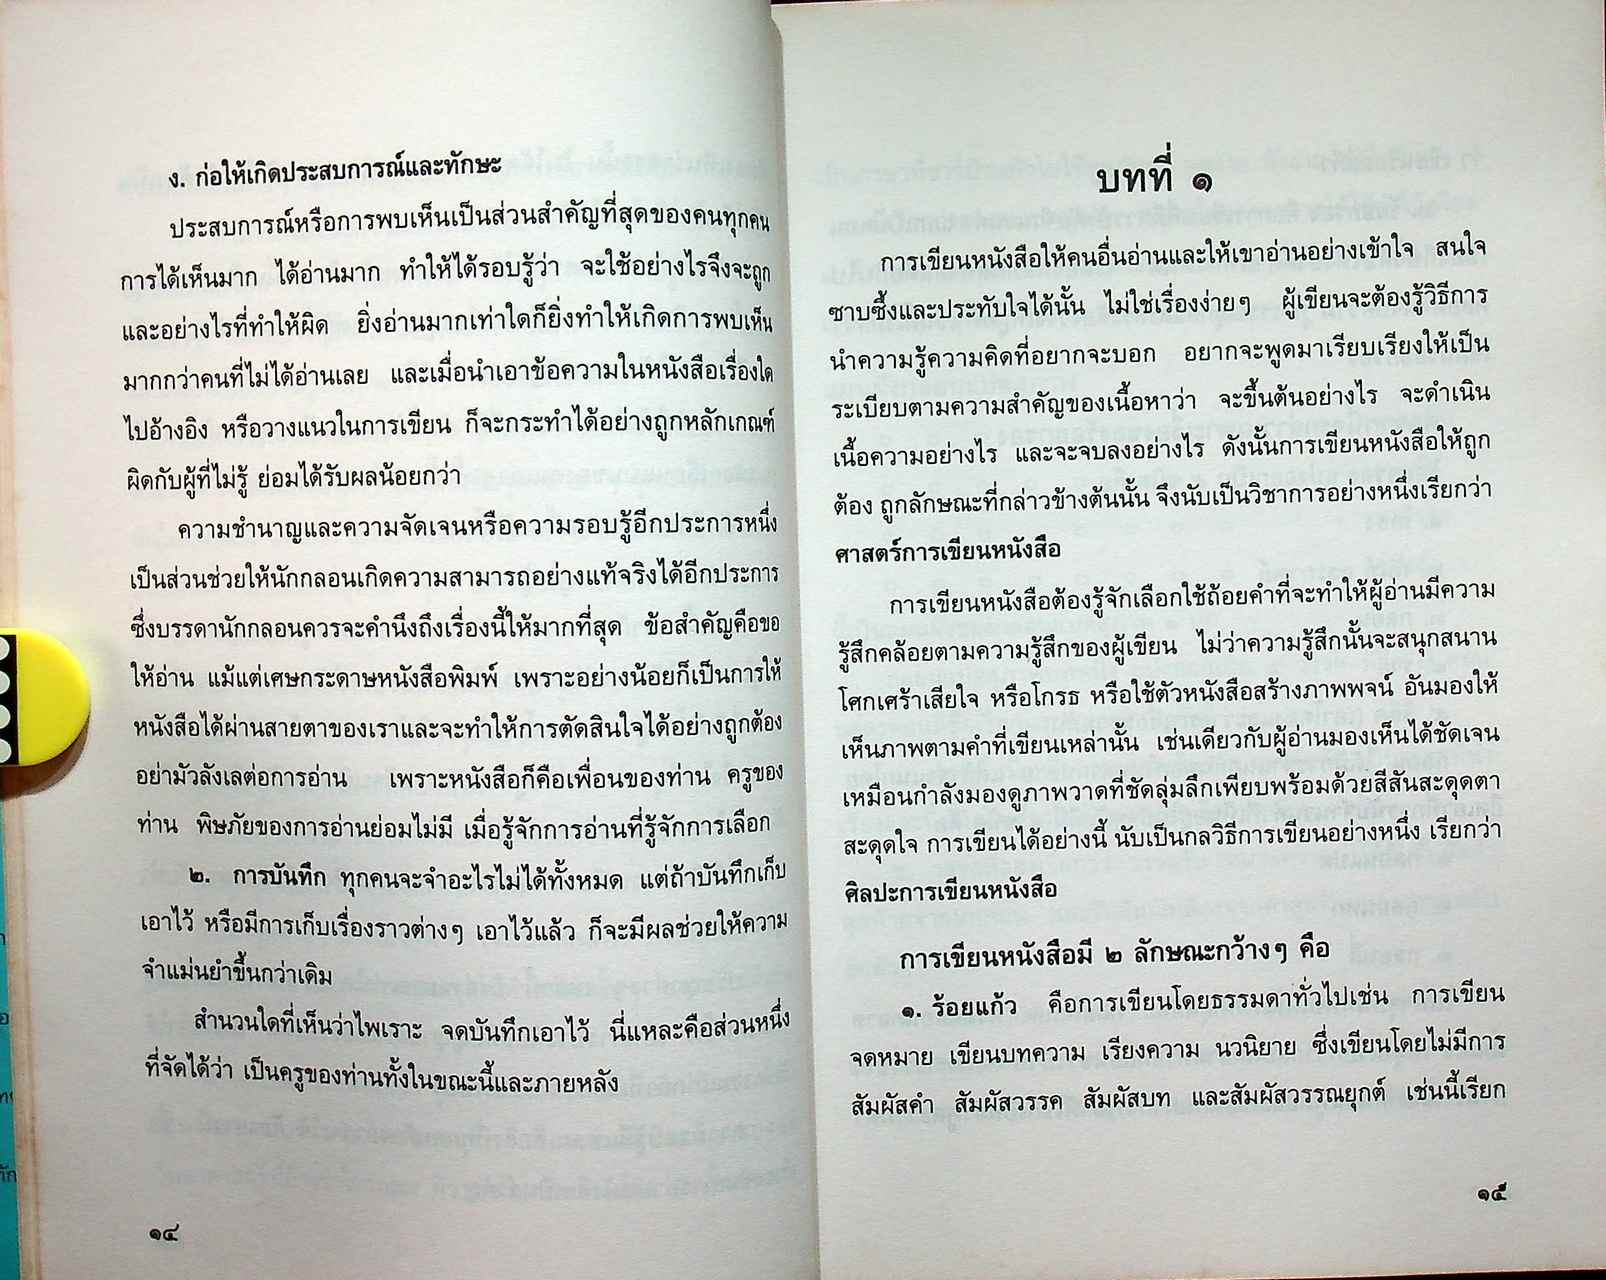 ง. ก่อให้เกิดประสบการณ์และทักษะ
ประสบการณ์หรือการพบเห็นเป็นส่วนสำคัญที่สุดของคนทุกคน
การได้เห็นมาก ได้อ่านมาก ทำให้ได้รอบรู้ว่า จะใช้อย่างไรจึงจะถูก
และอย่างไรที่ทำให้ผิด ยิ่งอ่านมากเท่าใดก็ยิ่งทำให้เกิดการพบเห็น
มากกว่าคนที่ไม่ได้อ่านเลย และเมื่อนำเอาข้อความในหนังสือเรื่องใด
ไปอ้างอิง หรือวางแนวในการเขียน ก็จะกระทำได้อย่างถูกหลักเกณฑ์
ผิดกับผู้ที่ไม่รู้ ย่อมได้รับผลน้อยกว่า
ความชำนาญและความจัดเจนหรือความรอบรู้อีกประการหนึ่ง
เป็นส่วนช่วยให้นักกลอนเกิดความสามารถอย่างแท้จริงได้อีกประการ
ซึ่งบรรดานักกลอนควรจะคำนึงถึงเรื่องนี้ให้มากที่สุด ข้อสำคัญคือขอ
ให้อ่าน แม้แต่เศษกระดาษหนังสือพิมพ์ เพราะอย่างน้อยก็เป็นการให้
หนังสือได้ผ่านสายตาของเราและจะทำให้การตัดสินใจได้อย่างถูกต้อง
อย่ามัวลังเลต่อการอ่าน เพราะหนังสือก็คือเพื่อนของท่าน ครูของ
ท่าน พิษภัยของการอ่านย่อมไม่มี เมื่อรู้จักการอ่านที่รู้จักการเลือก
๒. การบันทึก ทุกคนจะจำอะไรไม่ได้ทั้งหมด แต่ถ้าบันทึกเก็บ
เอาไว้ หรือมีการเก็บเรื่องราวต่างๆ เอาไว้แล้ว ก็จะมีผลช่วยให้ความ
จำแม่นยำขึ้นกว่าเดิม
สำนวนใดที่เห็นว่าไพเราะ จดบันทึกเอาไว้ นี่แหละคือส่วนหนึ่ง
ที่จัดได้ว่า เป็นครูของท่านทั้งในขณะนี้และภายหลัง
๑๔
บทที่ ๑
การเขียนหนังสือให้คนอื่นอ่านและให้เขาอ่านอย่างเข้าใจ สนใจ
ซาบซึ้งและประทับใจได้นั้น ไม่ใช่เรื่องง่ายๆ ผู้เขียนจะต้องรู้วิธีการ
นำความรู้ความคิดที่อยากจะบอก อยากจะพูดมาเรียบเรียงให้เป็น
ระเบียบตามความสำคัญของเนื้อหาว่า จะขึ้นต้นอย่างไร จะดำเนิน
เนื้อความอย่างไร และจะจบลงอย่างไร ดังนั้นการเขียนหนังสือให้ถูก
ต้อง ถูกลักษณะที่กล่าวข้างต้นนั้น จึงนับเป็นวิชาการอย่างหนึ่งเรียกว่า
ศาสตร์การเขียนหนังสือ
การเขียนหนังสือต้องรู้จักเลือกใช้ถ้อยคำที่จะทำให้ผู้อ่านมีความ
รู้สึกคล้อยตามความรู้สึกของผู้เขียน ไม่ว่าความรู้สึกนั้นจะสนุกสนาน
โศกเศร้าเสียใจ หรือโกรธ หรือใช้ตัวหนังสือสร้างภาพพจน์ อันมองให้
เห็นภาพตามคำที่เขียนเหล่านั้น เช่นเดียวกับผู้อ่านมองเห็นได้ชัดเจน
เหมือนกำลังมองดูภาพวาดที่ชัดลุ่มลึกเพียบพร้อมด้วยสีสันสะดุดตา
สะดุดใจ การเขียนได้อย่างนี้ นับเป็นกลวิธีการเขียนอย่างหนึ่ง เรียกว่า
ศิลปะการเขียนหนังสือ
การเขียนหนังสือมี ๒ ลักษณะกว้างๆ คือ
๑. ร้อยแก้ว คือการเขียนโดยธรรมดาทั่วไปเช่น การเขียน
จดหมาย เขียนบทความ เรียงความ นวนิยาย ซึ่งเขียนโดยไม่มีการ
สัมผัสคำ สัมผัสวรรค สัมผัสบท และสัมผัสวรรณยุกต์ เช่นนี้เรียก
๑๕